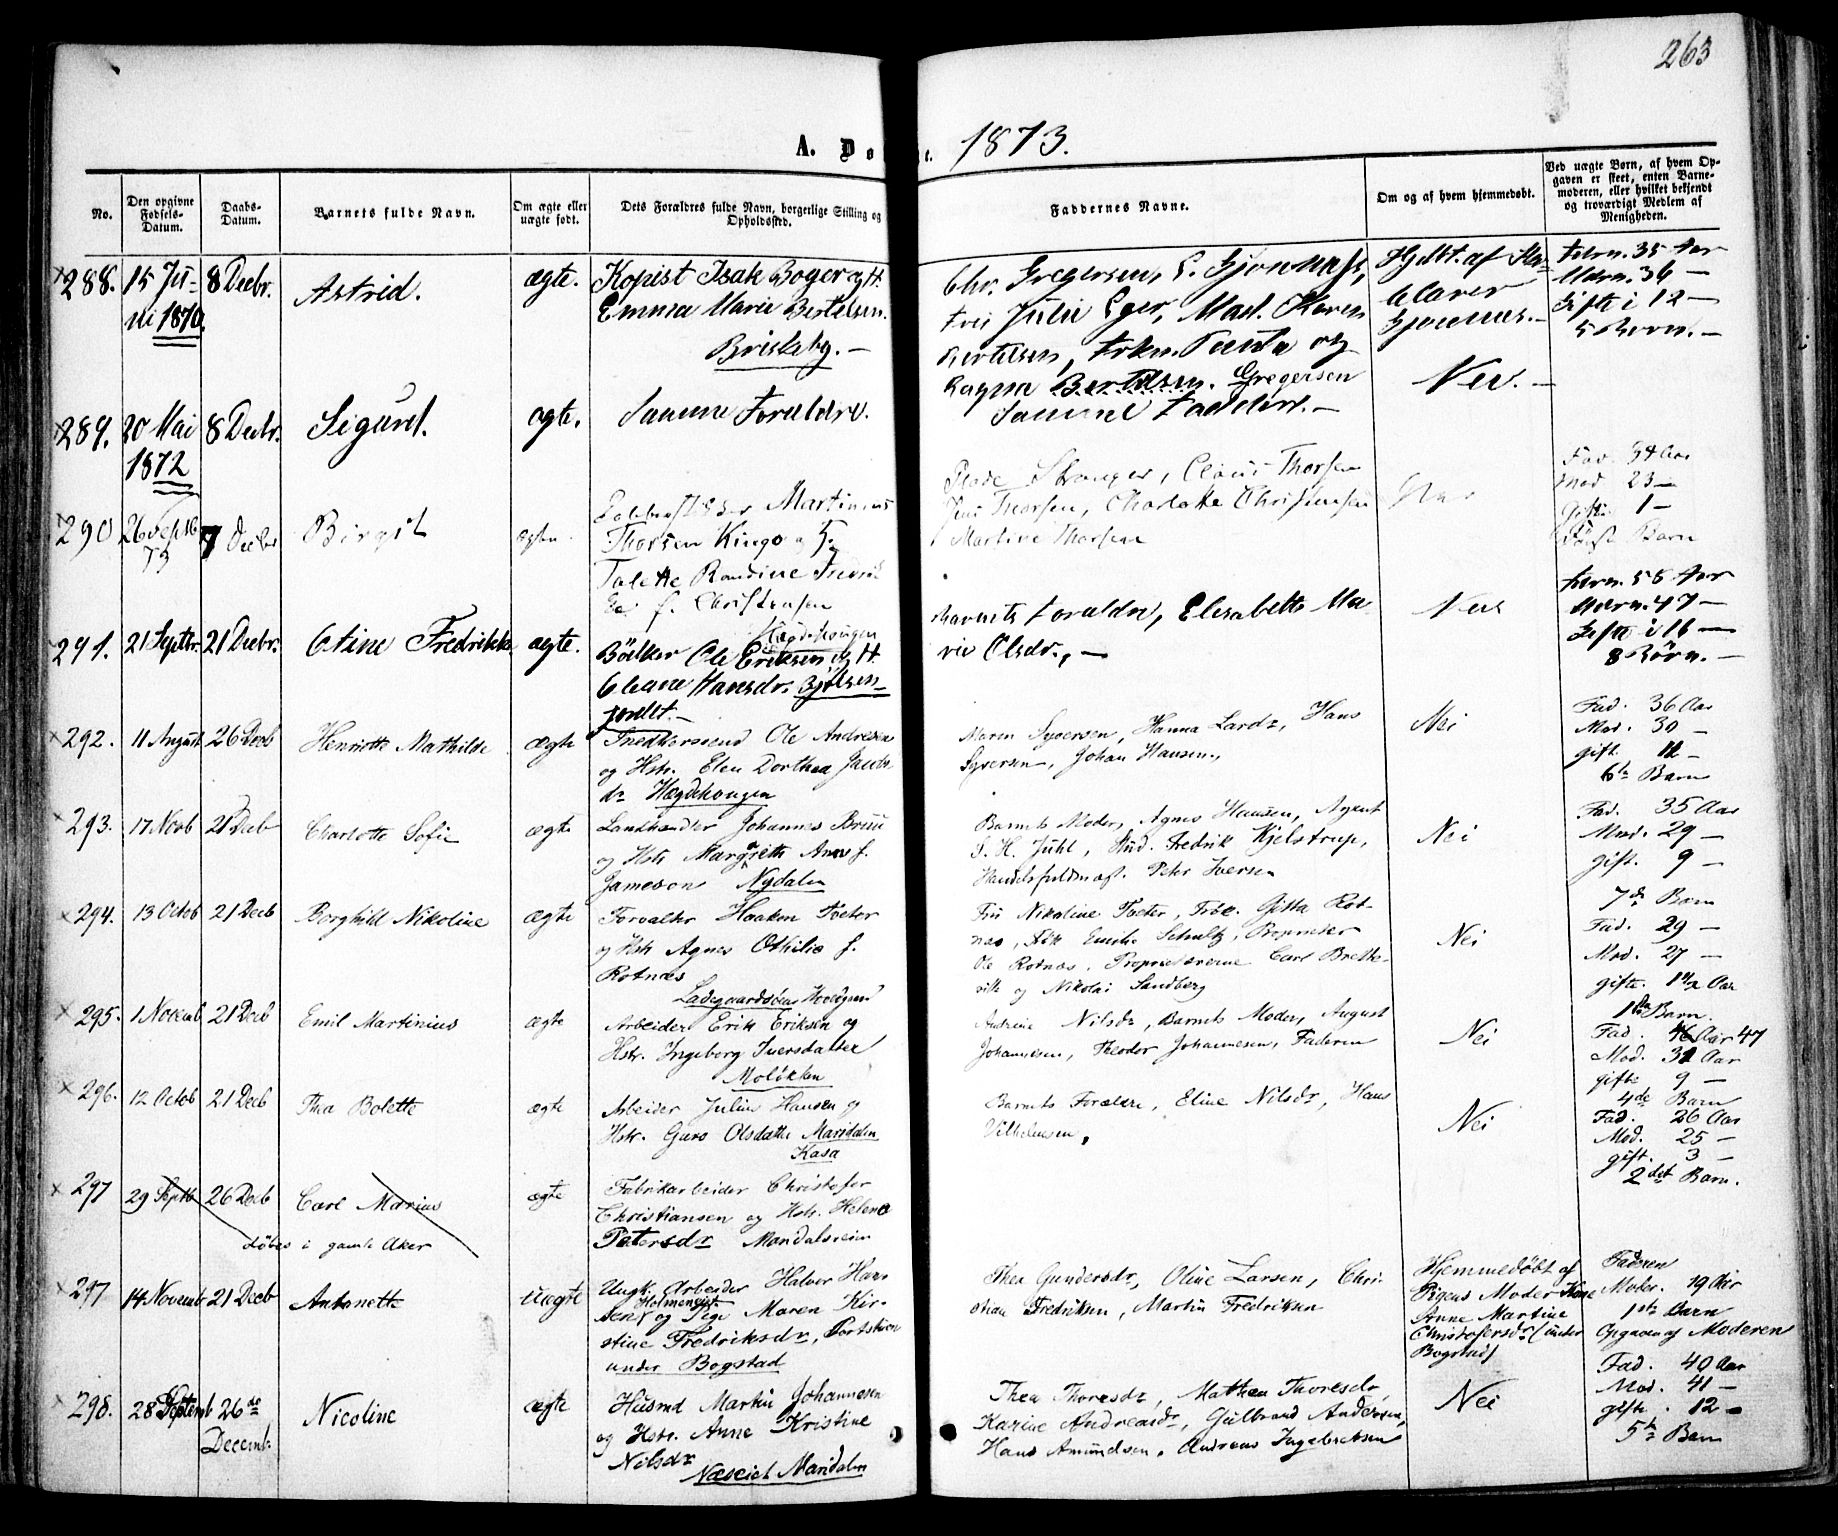 263
A. Døbte. 1873.
No.
Den opgivne Fødsels-Datum.
Daabs-Datum.
Barnets fulde Navn.
Om ægte eller uægte født.
Dets Forældres fulde Navn, borgerlige Stilling og Opholdssted.
Faddernes Navne.
Om og af hvem hjemmedøbt.
Ved uægte Børn, af hvem Opgaven er skeet, enten Barnemoderen, eller hvilket bekjendt og troværdigt Medlem af Menigheden.
288. 15 Juni 1870. 8 Decbr. Astrid. ægte.
Kopist Isak Boger og H.
Emma Marie Bertelsen.
Briskeby. —
Chr. Gregersen,
Julie Eger, Mad. Karen
Bertelsen, Tanta og
Ragna Bertelsen. Gregersen
Hjdbt. af
Gjönnes. —
Fdrn. 35 Aar
Mdrn. 36 —
Gifte i 12 —
5 Børn. —
289. 20 Mai 1872 8 Decbr. Sigurd. ægte.
Samme Forældre.
Samme Faddere. —
Nei. —
290 26 Septb 73 7 Decbr Birgit ægte.
Martinius
Thorsen Kingo og H.
Talette Randine
f. Christensen
Stranger, Claus Thorsen
Jens Thorsen, Charlotte Christensen
Martine Thorsen
Fad. 34 Aar
Mod 23 —
Gifte 1 —
Første Barn
291. 21 Septbr. 21 Decbr. Stine Fredrikke ægte.
Hægdehougen
Bödker Ole Eriksen, og H.
Eleane Hansdr. Bjölsen-
feldt. —
Barnets Forældre, Elisabeth Ma-
rie Olsdr., —
Nei
Fdrn. 58 Aar
Mdrn. 47 —
Gifte i 16 —
8 Børn. —
292. 11 August 26 Decb Henriette Mathilde ægte
Snedkersvend Ole Andresen
og Hstr. Elen Dorthea Jacobs
dr Hægdehougen
Maren Syversen, Hanna Larsdr, Hans
Syversen, Johan Hansen,
Nei
Fad. 36 Aar
Mod. 30 —
gift. 12 —
6te Barn
293. 17 Novb 21 Decb Charlotte Sofie ægte
Landhandler Johannes Bruu
og Hstr Margreth Anne f.
Jameson Nydalen
Barnets Moder, Agnes Hansen, Agent
S. H. Juhl, Stud. Fredrik Kjelstrup,
Handelsfuldmægt. Peter Iversen
Nei
Fad. 35 Aar
Mod. 29 —
gift. 9 —
7de Barn
294. 13 Octob 21 Decb Borghild Nikoline ægte
Forvalter Haaken Tveter
og Hstr Agnes Othilie f.
Rotnæs
Ladegaardsöens Hovedgaard
Fru Nikoline Tveter, Frök. Gitta Rot-
næs, Frk Emilie Schultz, Proprietær
Ole Rotnæs, Proprietærerne Carl Brette-
ville og Nikolai Sandberg
Nei
Fad. 29 —
Mod. 27 —
gifte. 1 1/2 Aar
1ste Barn.
295. 1 Novemb 21 Decb Emil Martinius ægte
Arbeider Erik Eriksen og
Hstr. Ingeborg Iversdatter
Molökken
Andrine Nilsdr, Barnets Moder, August
Johannesen, Theodor Johannesen, Faderen
Nei
Fad. 46 Aar 47
Mod. 31 Aar
gifte 9 —
4de Barn
296. 12 Octob 21 Decb Thea Bolette ægte
Arbeider Julius Hansen og
Hstr. Guro Olsdatter Maridalen
Kasa
Barnets Forældre, Eline Nilsdr, Hans
Vilhelmsen,
Nei
Fad. 26 Aar
Mod. 25 —
gift. 3 —
2det Barn.
297 29 Septb 26 Decb Carl Marius ægte
døbes i gamle Aker
Fabrikarbeider Christofer
Christiansen og Hstr. Helene
Petersdr Maridalsveien
297 14 Novemb 21 Decb Antonette uægte
Ungk. Arbeider Halvor Han-
sen Holmengist. og Pige Maren Kir-
stine Fredriksdr, Portstuen
under Bogstad
Thea Gundersdr, Oline Larsen, Chri-
stian Fredriksen, Martin Fredriksen
Hjemmedöbt af
Pigens Moder Kone
Anne Martine
Christofersdr (under
Bogstad)
Faderen
Moder. 19 Aar
1ste Barn
Opgaven af Moderen
298. 28 Septemb 26de Decemb. Nicoline ægte
Husmd Martin Johannesen
og Hstr. Anne Kristine
Nilsdr
Næseiet Maridalen
Thea Thoresdr, Mathea Thoresdr,
Karine Andreasdr, Gulbrand Andersen,
Hans Amundsen, Andreas Ingebretsen
Nei
Fad. 40 Aar
Mod. 41 —
gifte. 12 —
5te Barn